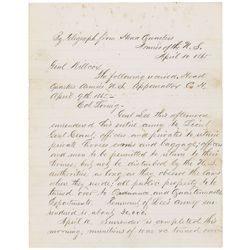 By Telegraph from Head Quarters
Armies of the U.S.
April 10 1865
Genl Willcox
The following received, Head
Quarters Armies U.S. Appomattox C.H.
April 9th 1865
Genl Lee this afternoon
surrendered his entire army to Lieut
Genl Grant, officers and privates to retain
private horses arms and baggage, officers
and men to be permitted to return to their
homes, but not to be disturbed by the U.S.
authorities, as long as they observe the laws
where they reside, all public property to
be turned over to Ordnance and Quartermasters
Departments.
surrendered is about
Surrender is completed this
morning, munitions of war &c turned over